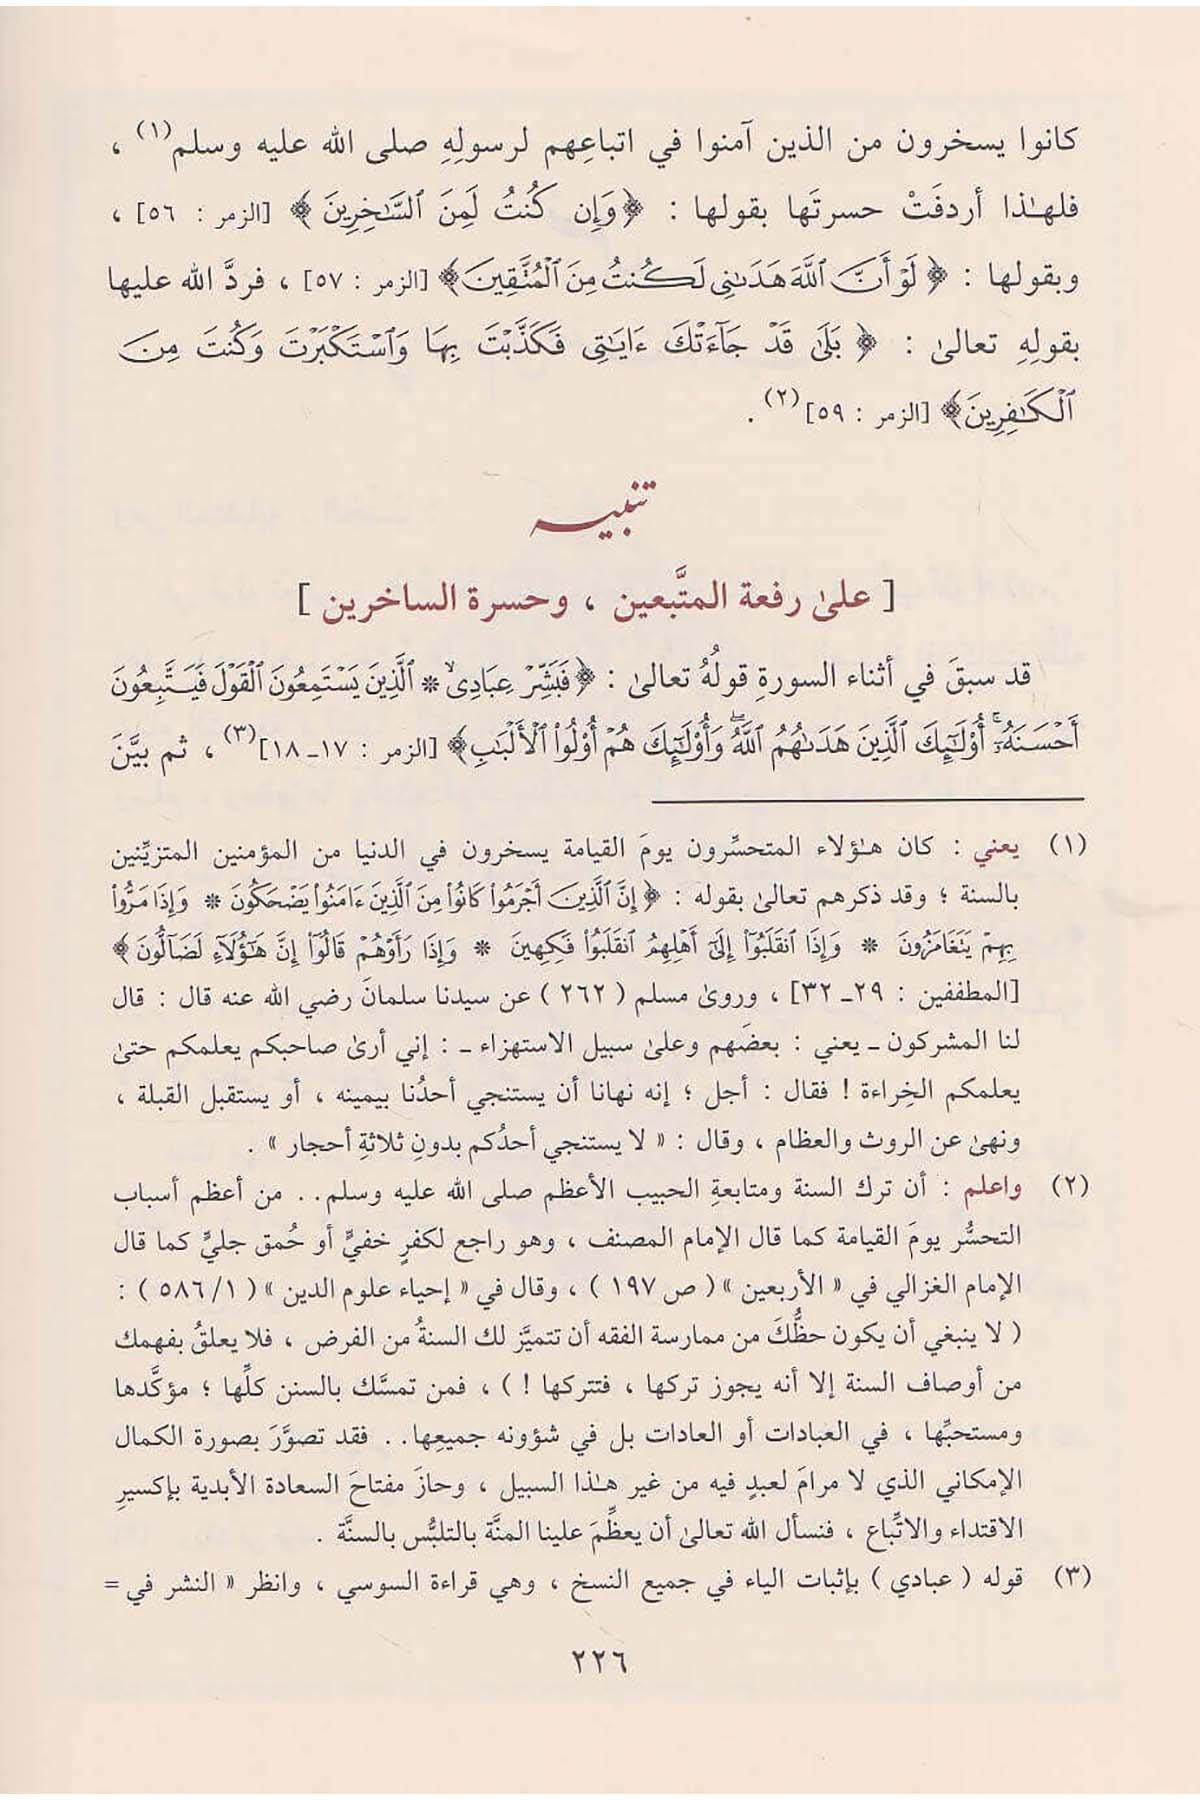 كانوا يسخرون من الذين آمنوا في اتباعِهم لرسولِهِ صلى الله عليه وسلم(١) ،
فلهـٰذا أردفَتْ حسرتَها بقولها : ﴿ وَإِن كُنتُ لَمِنَ ٱلسَّـٰخِرِينَ ﴾ [الزمر : ٥٦] ،
وبقولها : ﴿ لَوْ أَنَّ ٱللَّهَ هَدَىٰنِي لَكُنتُ مِنَ ٱلْمُتَّقِينَ ﴾ [الزمر : ٥٧] ، فردَّ الله عليها
بقولِهِ تعالىٰ : ﴿ بَلَىٰ قَدْ جَآءَتْكَ ءَايَـٰتِي فَكَذَّبْتَ بِهَا وَٱسْتَكْبَرْتَ وَكُنتَ مِنَ
ٱلْكَـٰفِرِينَ ﴾ [الزمر : ٥٩](٢) .
تنبيه
[ علىٰ رفعة المتَّبعين ، وحسرة الساخرين ]
قد سبقَ في أثناء السورةِ قولُهُ تعالىٰ : ﴿ فَبَشِّرْ عِبَادِىَ * ٱلَّذِينَ يَسْتَمِعُونَ ٱلْقَوْلَ فَيَتَّبِعُونَ
أَحْسَنَهُۥٓ أُو۟لَـٰٓئِكَ ٱلَّذِينَ هَدَىٰهُمُ ٱللَّهُ وَأُو۟لَـٰٓئِكَ هُمْ أُو۟لُوا۟ ٱلْأَلْبَـٰبِ ﴾ [الزمر : ١٧ـ ١٨](٣) ، ثم بيَّنَ
(١) يعني : كان هـٰؤلاء المتحسِّرون يومَ القيامة يسخرون في الدنيا من المؤمنين المتزيِّنين
بالسنة ؛ وقد ذكرهم تعالىٰ بقوله : ﴿ إِنَّ ٱلَّذِينَ أَجْرَمُوا۟ كَانُوا۟ مِنَ ٱلَّذِينَ ءَامَنُوا۟ يَضْحَكُونَ * وَإِذَا مَرُّوا۟
بِهِمْ يَتَغَامَزُونَ * وَإِذَا ٱنقَلَبُوٓا۟ إِلَىٰٓ أَهْلِهِمُ ٱنقَلَبُوا۟ فَكِهِينَ * وَإِذَا رَأَوْهُمْ قَالُوٓا۟ إِنَّ هَـٰٓؤُلَآءِ لَضَآلُّونَ ﴾
[المطففين : ٢٩ـ ٣٢] ، وروىٰ مسلم ( ٢٦٢ ) عن سيدنا سلمانَ رضي الله عنه قال : قال
لنا المشركون ـ يعني : بعضَهم وعلىٰ سبيل الاستهزاء ـ : إني أرىٰ صاحبكم يعلمكم حتىٰ
يعلمكم الخِراءة ! فقال : أجل ؛ إنه نهانا أن يستنجي أحدُنا بيمينه ، أو يستقبل القبلة ،
ونهىٰ عن الروث والعظام ، وقال : « لا يستنجي أحدُكم بدونِ ثلاثةِ أحجار » .
(٢) واعلم : أن ترك السنة ومتابعةِ الحبيب الأعظم صلى الله عليه وسلم.. من أعظم أسباب
التحسُّر يومَ القيامة كما قال الإمام المصنف ، وهو راجع لكفرٍ خفيٍّ أو حُمق جليٍّ كما قال
الإمام الغزالي في « الأربعين » ( ص ١٩٧ ) ، وقال في « إحياء علوم الدين » ( ١/ ٥٨٦ ) :
( لا ينبغي أن يكون حظُّكَ من ممارسة الفقه أن تتميَّز لك السنةُ من الفرض ، فلا يعلقُ بفهمك
من أوصاف السنة إلا أنه يجوز تركها ، فتتركها ! ) ، فمن تمسَّك بالسنن كلِّها ؛ مؤكَّدها
ومستحبِّها ، في العبادات أو العادات بل في شؤونه جميعِها.. فقد تصوَّرَ بصورة الكمال
الإمكاني الذي لا مرامَ لعبدٍ فيه من غير هـٰذا السبيل ، وحازَ مفتاحَ السعادة الأبدية بإكسيرِ
الاقتداء والاتِّباع ، فنسأل الله تعالىٰ أن يعظِّمَ علينا المنَّة بالتلبُّس بالسنَّة .
(٣) قوله ( عبادي ) بإثبات الياء في جميع النسخ ، وهي قراءة السوسي ، وانظر « النشر في =
٢٢٦